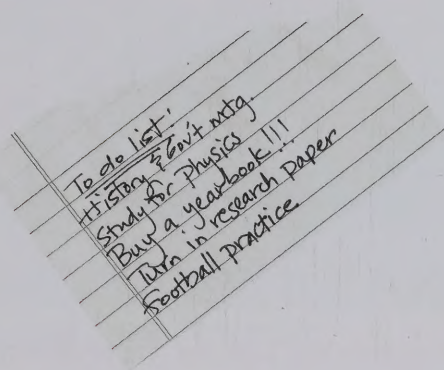 To do list:
History & Gov't mtg.
Study for Physics
Buy a yearbook!!!
Turn in research paper
Football practice